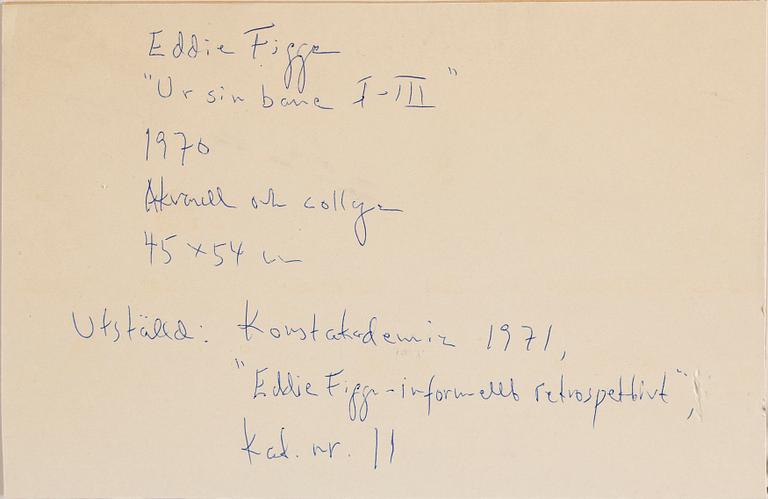 Eddie Figge
"Ur sin bane I-III"
1970
Akvarell och collage
45 x 54 cm
Utställd: Konstakademin 1971,
"Eddie Figge - informellt retrospektivt",
Kat. nr. 11